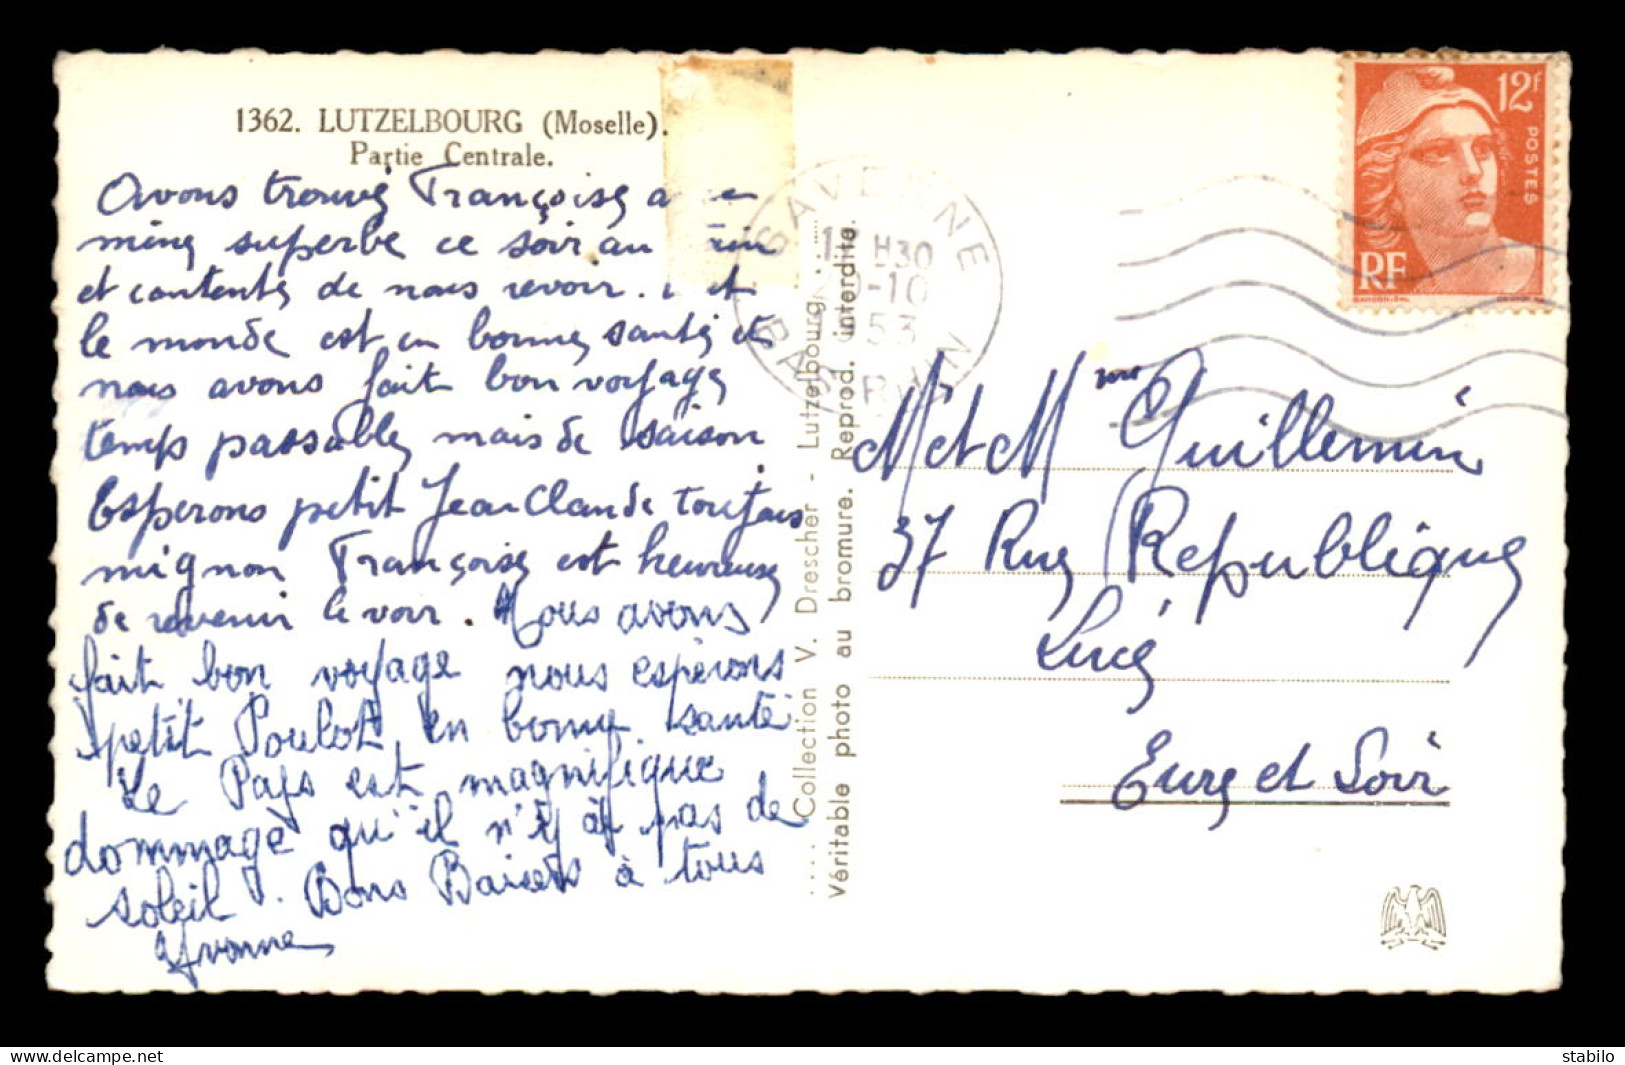 1362. LUTZELBOURG (Moselle).
Partie Centrale.
Avons trouvé Françoise
mine superbe ce soir au
et contents de nous revoir.
le monde est en bonne santé et
nous avons fait bon voyage
temps passable mais de saison
Esperons petit Jean Claude toujours
mignon Françoise est heureuse
de revenir le voir. Nous avons
fait bon voyage nous espérons
petit Poulot en bonne santé
Le Pays est magnifique
dommage qu'il n'y ai pas de
soleil. Bons Baisers à tous
Yvonne
.... Collection V. Drescher - Lutzelbourg ....
Véritable photo au bromure. Reprod. interdite.
SAVERNE
H30
-10
53
BAS RHIN
12f
POSTES
RF
Mr et Mme Guillemin
37 Rue Republique
Lucé
Eure et Loir
stabilo